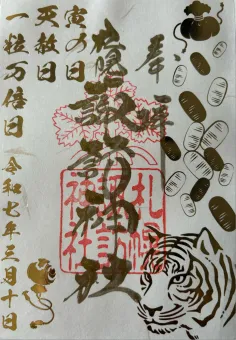 奉拝
諏訪神社
寅の日
天赦日
一粒万倍日
令和七年三月十日
札幌
諏訪
神社